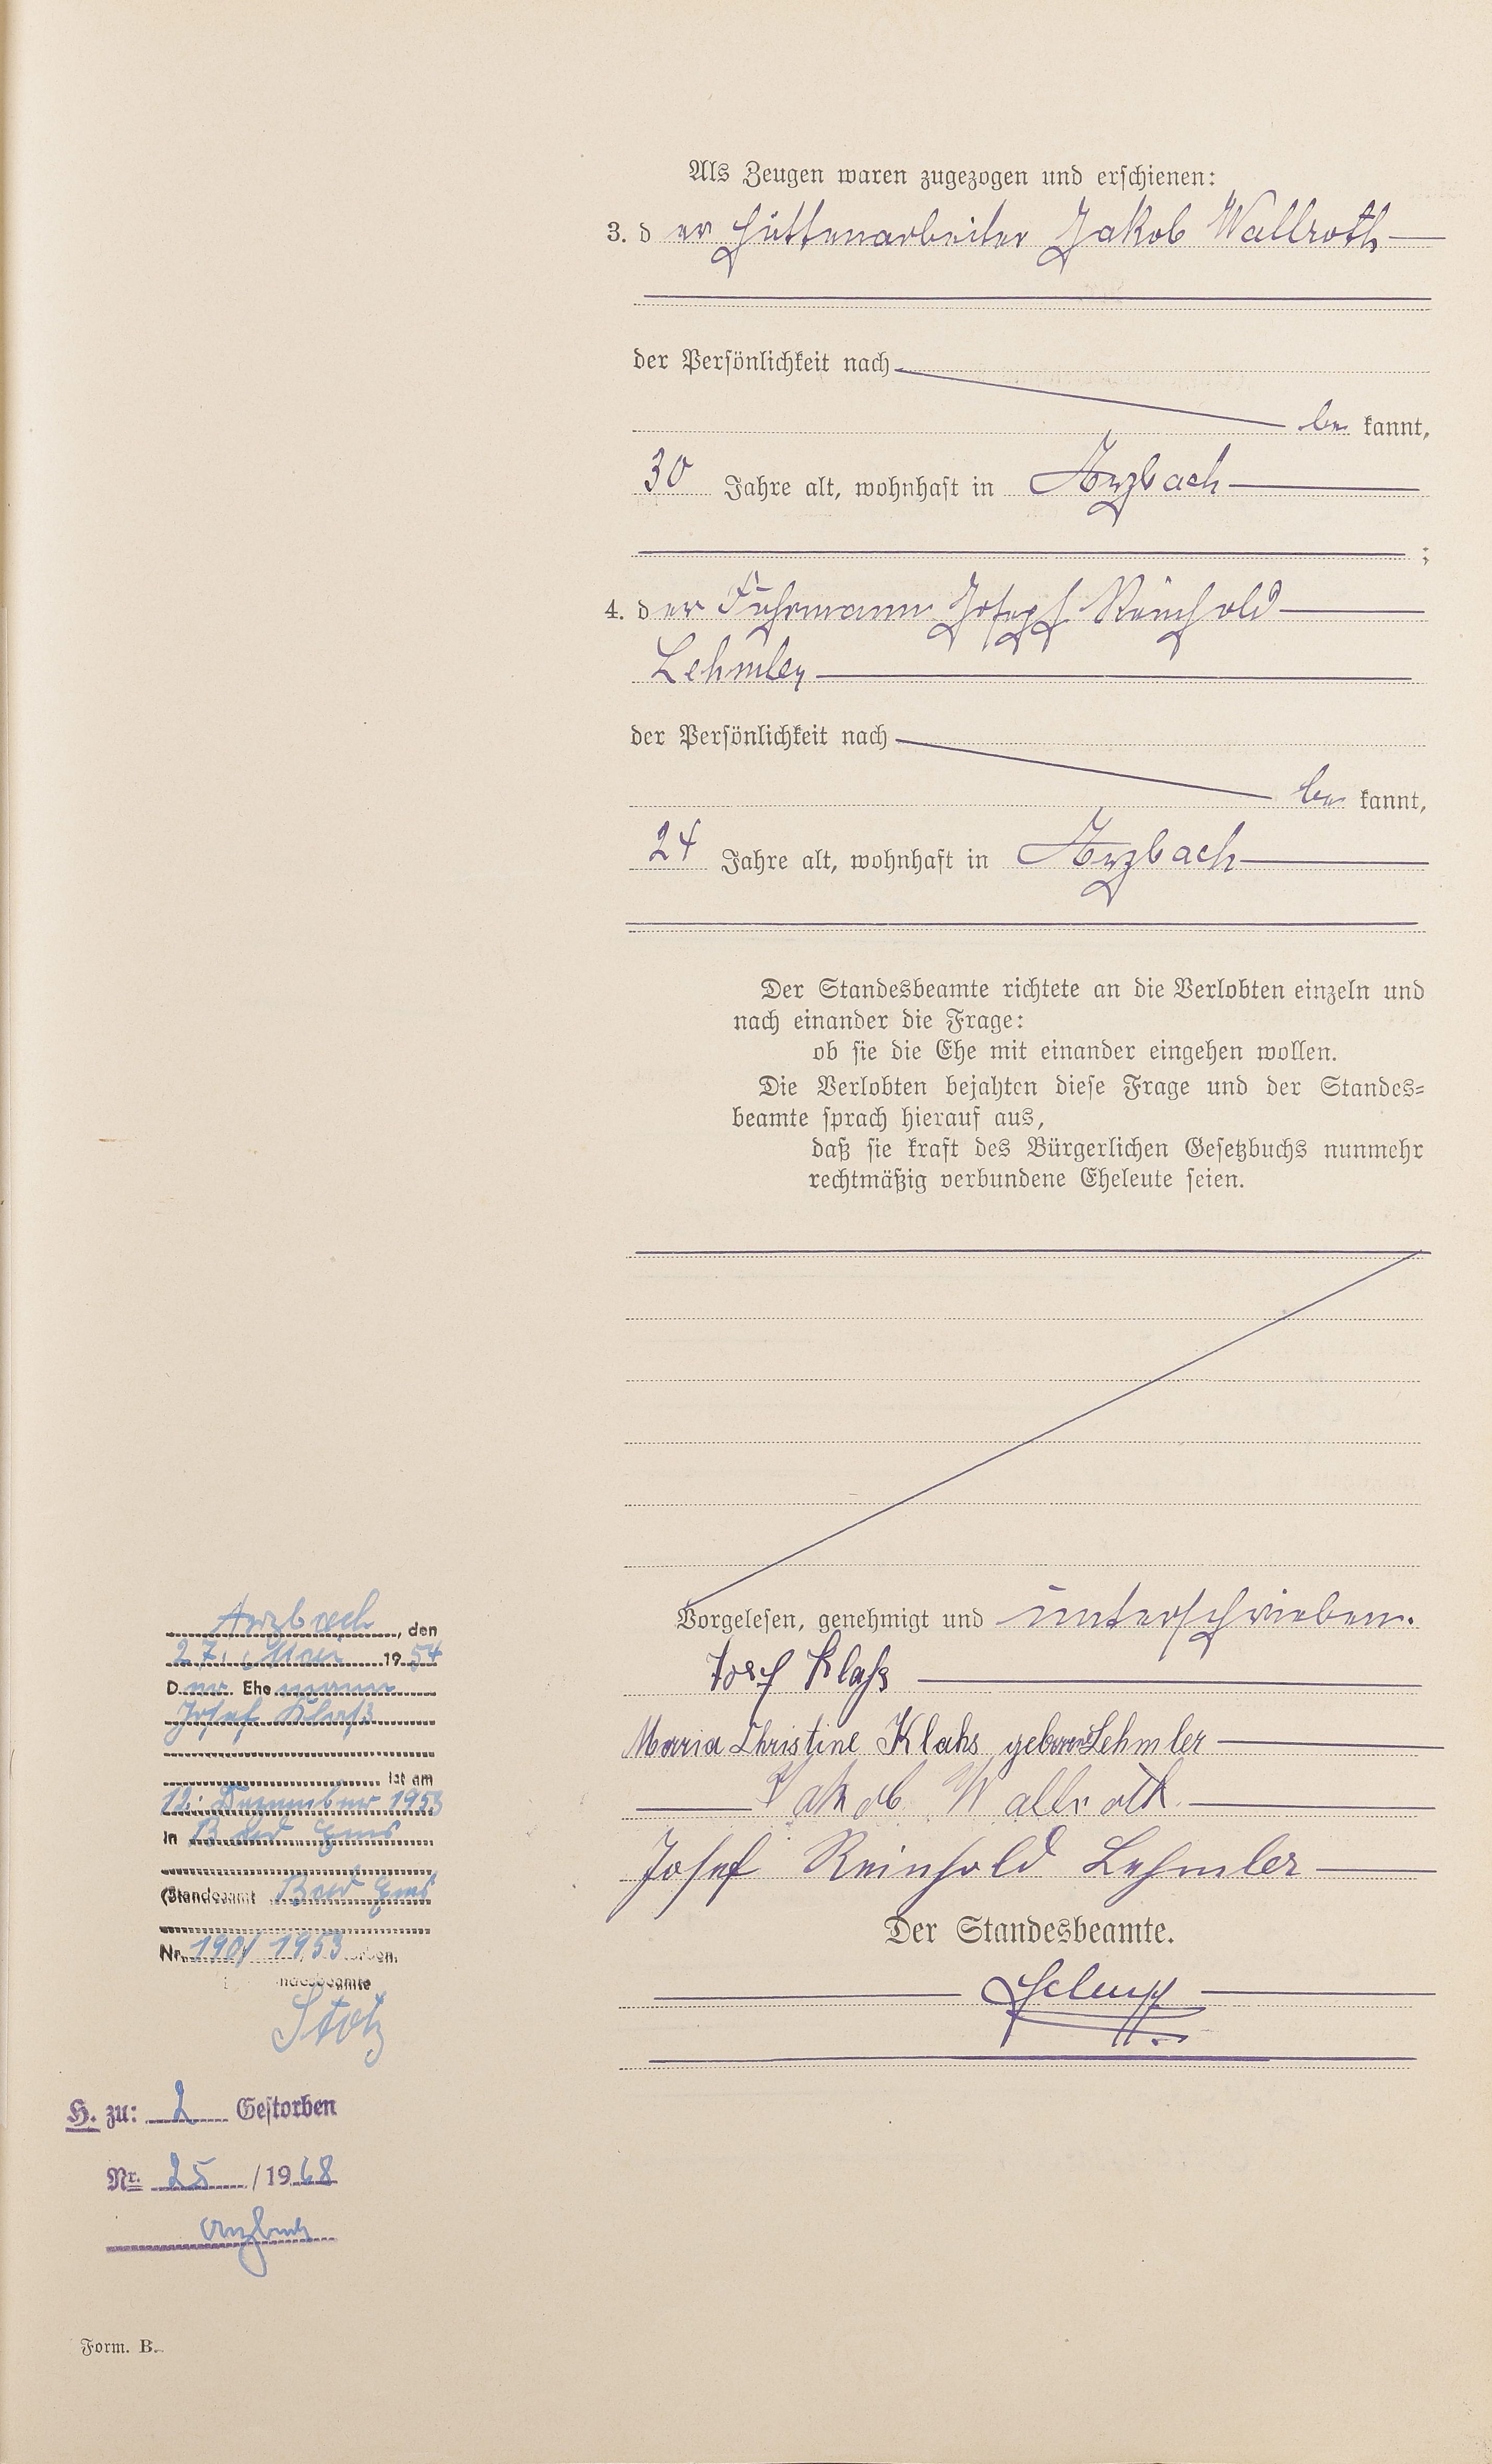 Als Zeugen waren zugezogen und erschienen:
3. der Hüttenarbeiter Jakob Wallroth
der Persönlichkeit nach
be kannt,
30 Jahre alt, wohnhaft in Arzbach
;
4. der Fuhrmann Joseph Reinhold
Lehmler
der Persönlichkeit nach
be kannt,
24 Jahre alt, wohnhaft in Arzbach
Der Standesbeamte richtete an die Verlobten einzeln und
nach einander die Frage:
ob sie die Ehe mit einander eingehen wollen.
Die Verlobten bejahten diese Frage und der Standes=
beamte sprach hierauf aus,
daß sie kraft des Bürgerlichen Gesetzbuchs nunmehr
rechtmäßig verbundene Eheleute seien.
Vorgelesen, genehmigt und unterschrieben.
Josef Klahs
Maria Christine Klahs geborene Lehmler
Jakob Wallroth
Josef Reinhold Lehmler
Der Standesbeamte.
Arzbach, den
27. Mai 1954
Der Ehemann
Josef Klahs
ist am
12. Dezember 1953
in Bad Ems
(Standesamt Bad Ems
Nr. 190/1953
Stotz
H. zu: 2 Gestorben
Nr. 25 / 1968
Arzbach
Form. B.